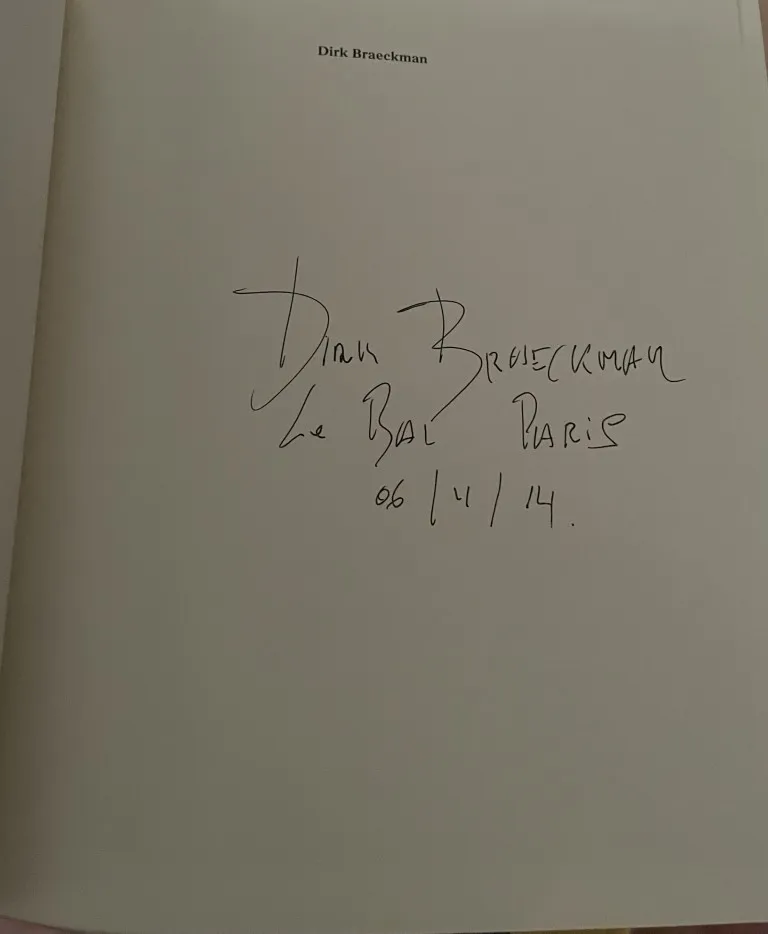 Dirk Braeckman
Dirk Braeckman
Le Bal Paris
06/4/14.